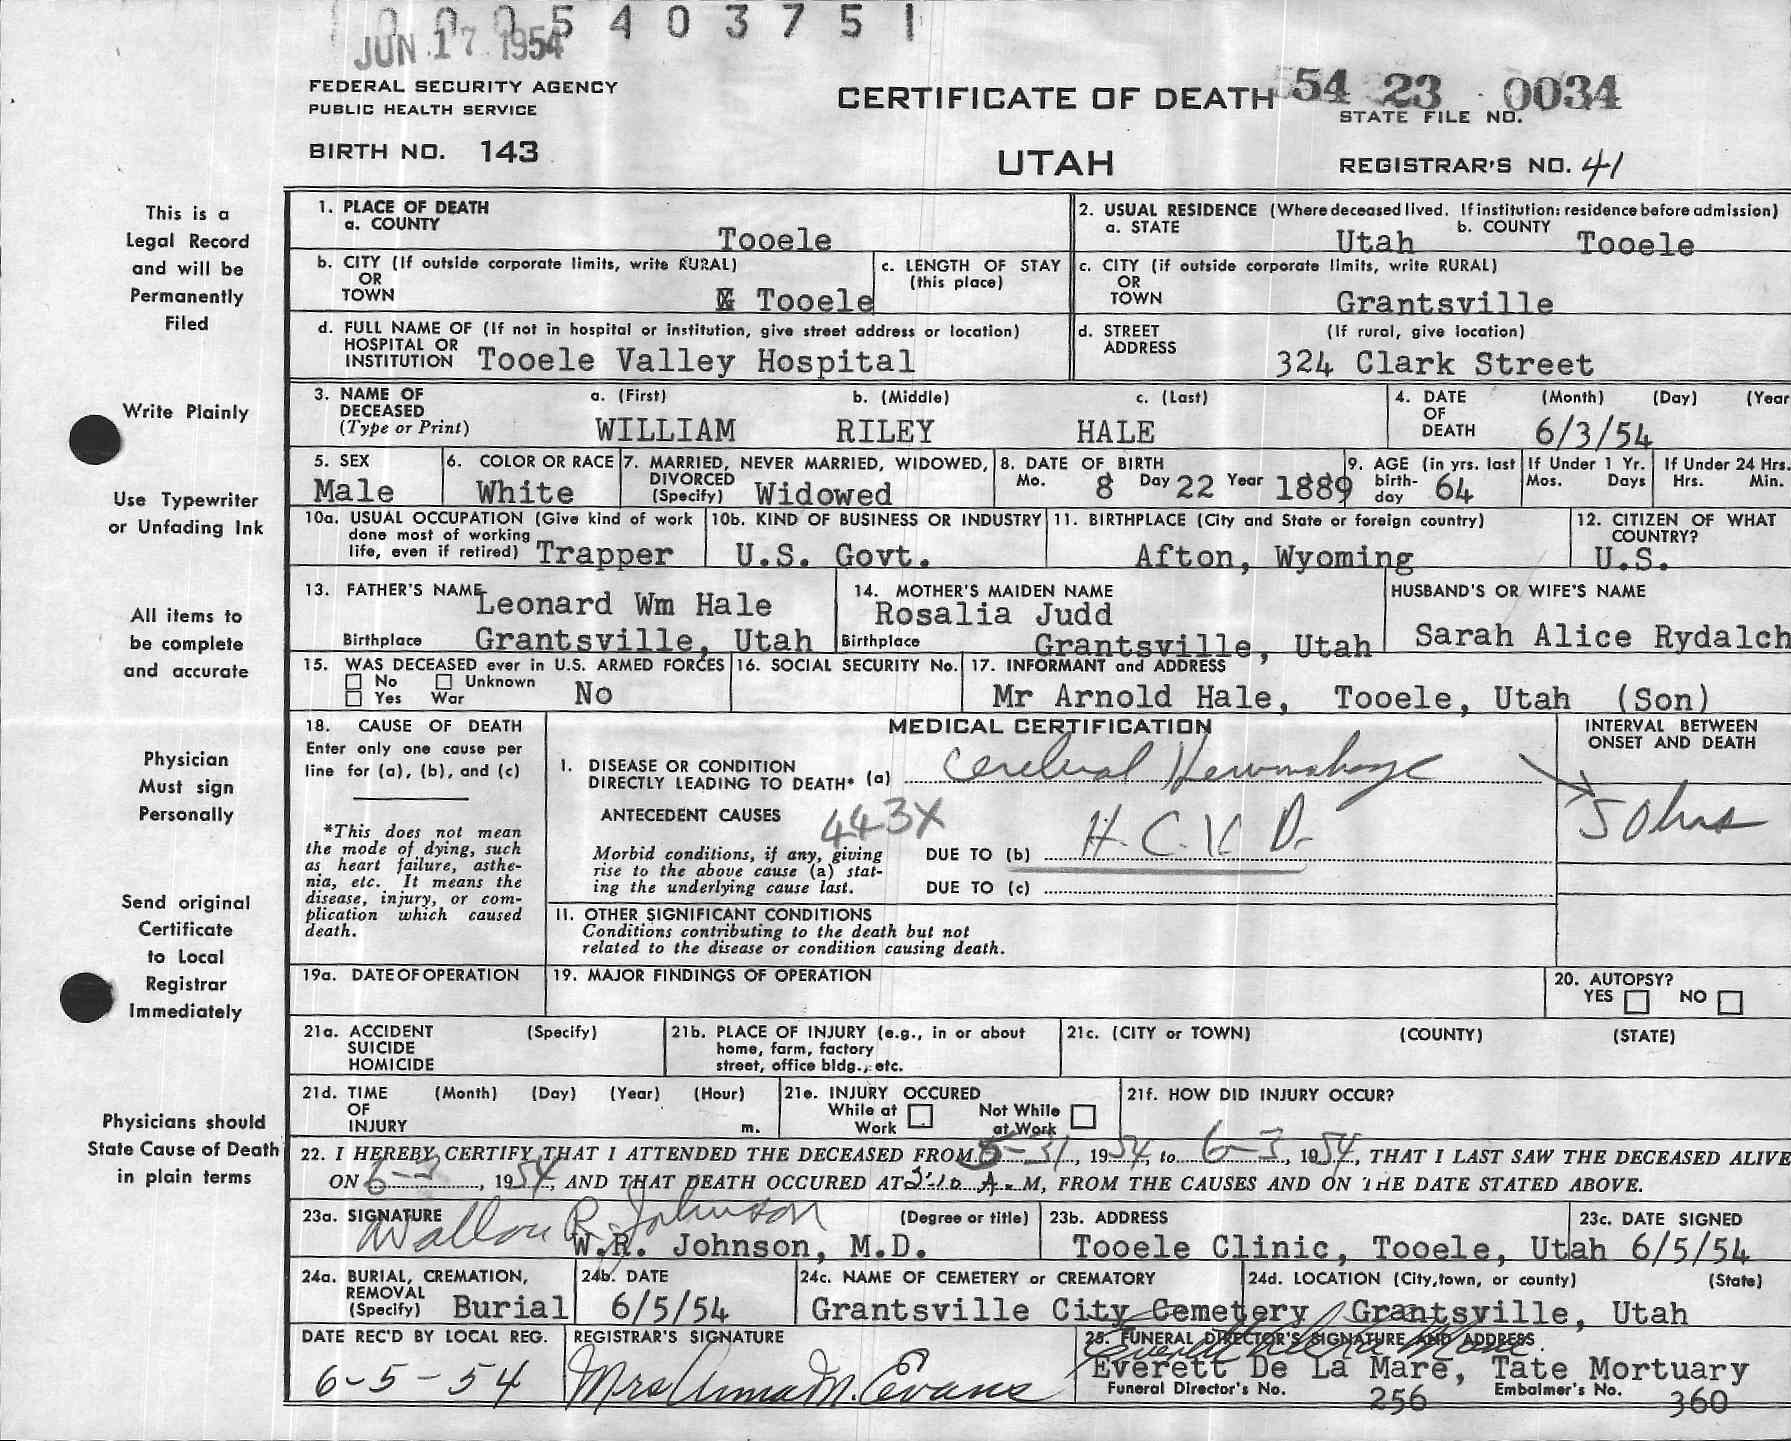 0005403751
JUN 17 1954
FEDERAL SECURITY AGENCY
PUBLIC HEALTH SERVICE
BIRTH NO. 143
CERTIFICATE OF DEATH
UTAH
54 23 0034
STATE FILE NO.
REGISTRAR'S NO. 41
This is a
Legal Record
and will be
Permanently
Filed
Write Plainly
Use Typewriter
or Unfading Ink
All items to
be complete
and accurate
Physician
Must sign
Personally
Send original
Certificate
to Local
Registrar
Immediately
Physicians should
State Cause of Death
in plain terms
1. PLACE OF DEATH
a. COUNTY
Tooele
2. USUAL RESIDENCE (Where deceased lived. If institution: residence before admission)
a. STATE Utah b. COUNTY Tooele
b. CITY (If outside corporate limits, write RURAL)
OR
TOWN Tooele
c. LENGTH OF STAY
(this place)
c. CITY (if outside corporate limits, write RURAL)
OR
TOWN Grantsville
d. FULL NAME OF (If not in hospital or institution, give street address or location)
HOSPITAL OR
INSTITUTION Tooele Valley Hospital
d. STREET (If rural, give location)
ADDRESS
324 Clark Street
3. NAME OF a. (First) b. (Middle) c. (Last)
DECEASED
(Type or Print) WILLIAM RILEY HALE
4. DATE (Month) (Day) (Year
OF
DEATH 6/3/54
5. SEX
Male
6. COLOR OR RACE
White
7. MARRIED, NEVER MARRIED, WIDOWED,
DIVORCED
(Specify) Widowed
8. DATE OF BIRTH
Mo. 8 Day 22 Year 1889
9. AGE (in yrs. last
birth-
day 64
If Under 1 Yr.
Mos. Days
If Under 24 Hrs.
Hrs. Min.
10a. USUAL OCCUPATION (Give kind of work
done most of working
life, even if retired) Trapper
10b. KIND OF BUSINESS OR INDUSTRY
U.S. Govt.
11. BIRTHPLACE (City and State or foreign country)
Afton, Wyoming
12. CITIZEN OF WHAT
COUNTRY?
U.S.
13. FATHER'S NAME Leonard Wm Hale
Birthplace Grantsville, Utah
14. MOTHER'S MAIDEN NAME
Rosalia Judd
Birthplace Grantsville, Utah
HUSBAND'S OR WIFE'S NAME
Sarah Alice Rydalch
15. WAS DECEASED ever in U.S. ARMED FORCES
No Unknown
Yes War
No
16. SOCIAL SECURITY No.
17. INFORMANT and ADDRESS
Mr Arnold Hale, Tooele, Utah (Son)
18. CAUSE OF DEATH
Enter only one cause per
line for (a), (b), and (c)
*This does not mean
the mode of dying, such
as heart failure, asthe-
nia, etc. It means the
disease, injury, or com-
plication which caused
death.
MEDICAL CERTIFICATION
I. DISEASE OR CONDITION
DIRECTLY LEADING TO DEATH* (a) Cerebral Hemmorhage
ANTECEDENT CAUSES 443X
Morbid conditions, if any, giving
rise to the above cause (a) stat-
ing the underlying cause last.
DUE TO (b) H.C.V.D.
DUE TO (c)
II. OTHER SIGNIFICANT CONDITIONS
Conditions contributing to the death but not
related to the disease or condition causing death.
INTERVAL BETWEEN
ONSET AND DEATH
50 hrs
19a. DATE OF OPERATION
19. MAJOR FINDINGS OF OPERATION
20. AUTOPSY?
YES NO
21a. ACCIDENT (Specify)
SUICIDE
HOMICIDE
21b. PLACE OF INJURY (e.g., in or about
home, farm, factory
street, office bldg., etc.
21c. (CITY or TOWN) (COUNTY) (STATE)
21d. TIME (Month) (Day) (Year) (Hour)
OF
INJURY m.
21e. INJURY OCCURED
While at Not While
Work at Work
21f. HOW DID INJURY OCCUR?
22. I HEREBY CERTIFY THAT I ATTENDED THE DECEASED FROM 5-31, 1954, to 6-3, 1954, THAT I LAST SAW THE DECEASED ALIVE
ON 6-3, 1954, AND THAT DEATH OCCURED AT :10 A.M, FROM THE CAUSES AND ON THE DATE STATED ABOVE.
23a. SIGNATURE (Degree or title)
R. Johnson
W.R. Johnson, M.D.
23b. ADDRESS
Tooele Clinic, Tooele, Utah
23c. DATE SIGNED
6/5/54
24a. BURIAL, CREMATION,
REMOVAL
(Specify) Burial
24b. DATE
6/5/54
24c. NAME OF CEMETERY or CREMATORY
Grantsville City Cemetery
24d. LOCATION (City, town, or county) (State)
Grantsville, Utah
DATE REC'D BY LOCAL REG.
6-5-54
REGISTRAR'S SIGNATURE
Mrs Anna M. Evans
25. FUNERAL DIRECTOR'S SIGNATURE AND ADDRESS.
Everett De La Mare, Tate Mortuary
Funeral Director's No. 256 Embalmer's No. 360